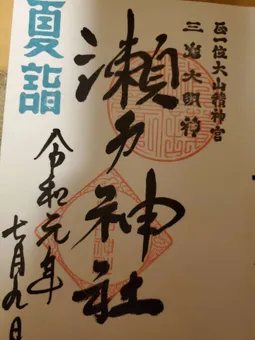 正一位大山積神宮
三島大明神
瀬戸神社
夏詣
令和元年
七月九日